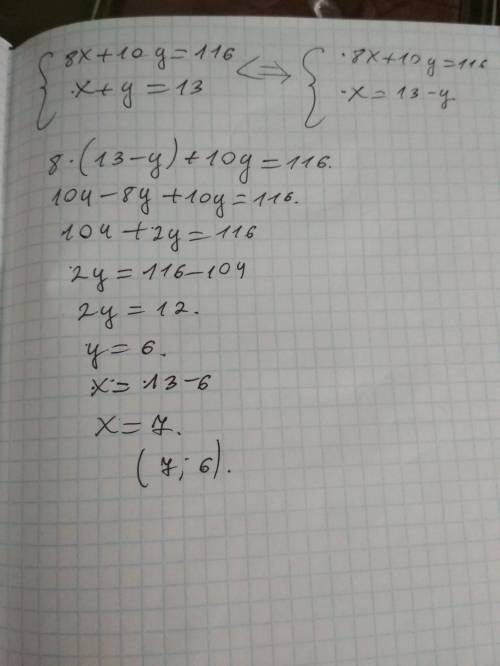 { 8x+10y=116 <=> { 8x+10y=116
x+y=13 x=13-y
8·(13-y)+10y=116.
104-8y+10y=116.
104+2y=116
2y=116-104
2y=12.
y=6.
x=13-6
x=7.
(7; 6).